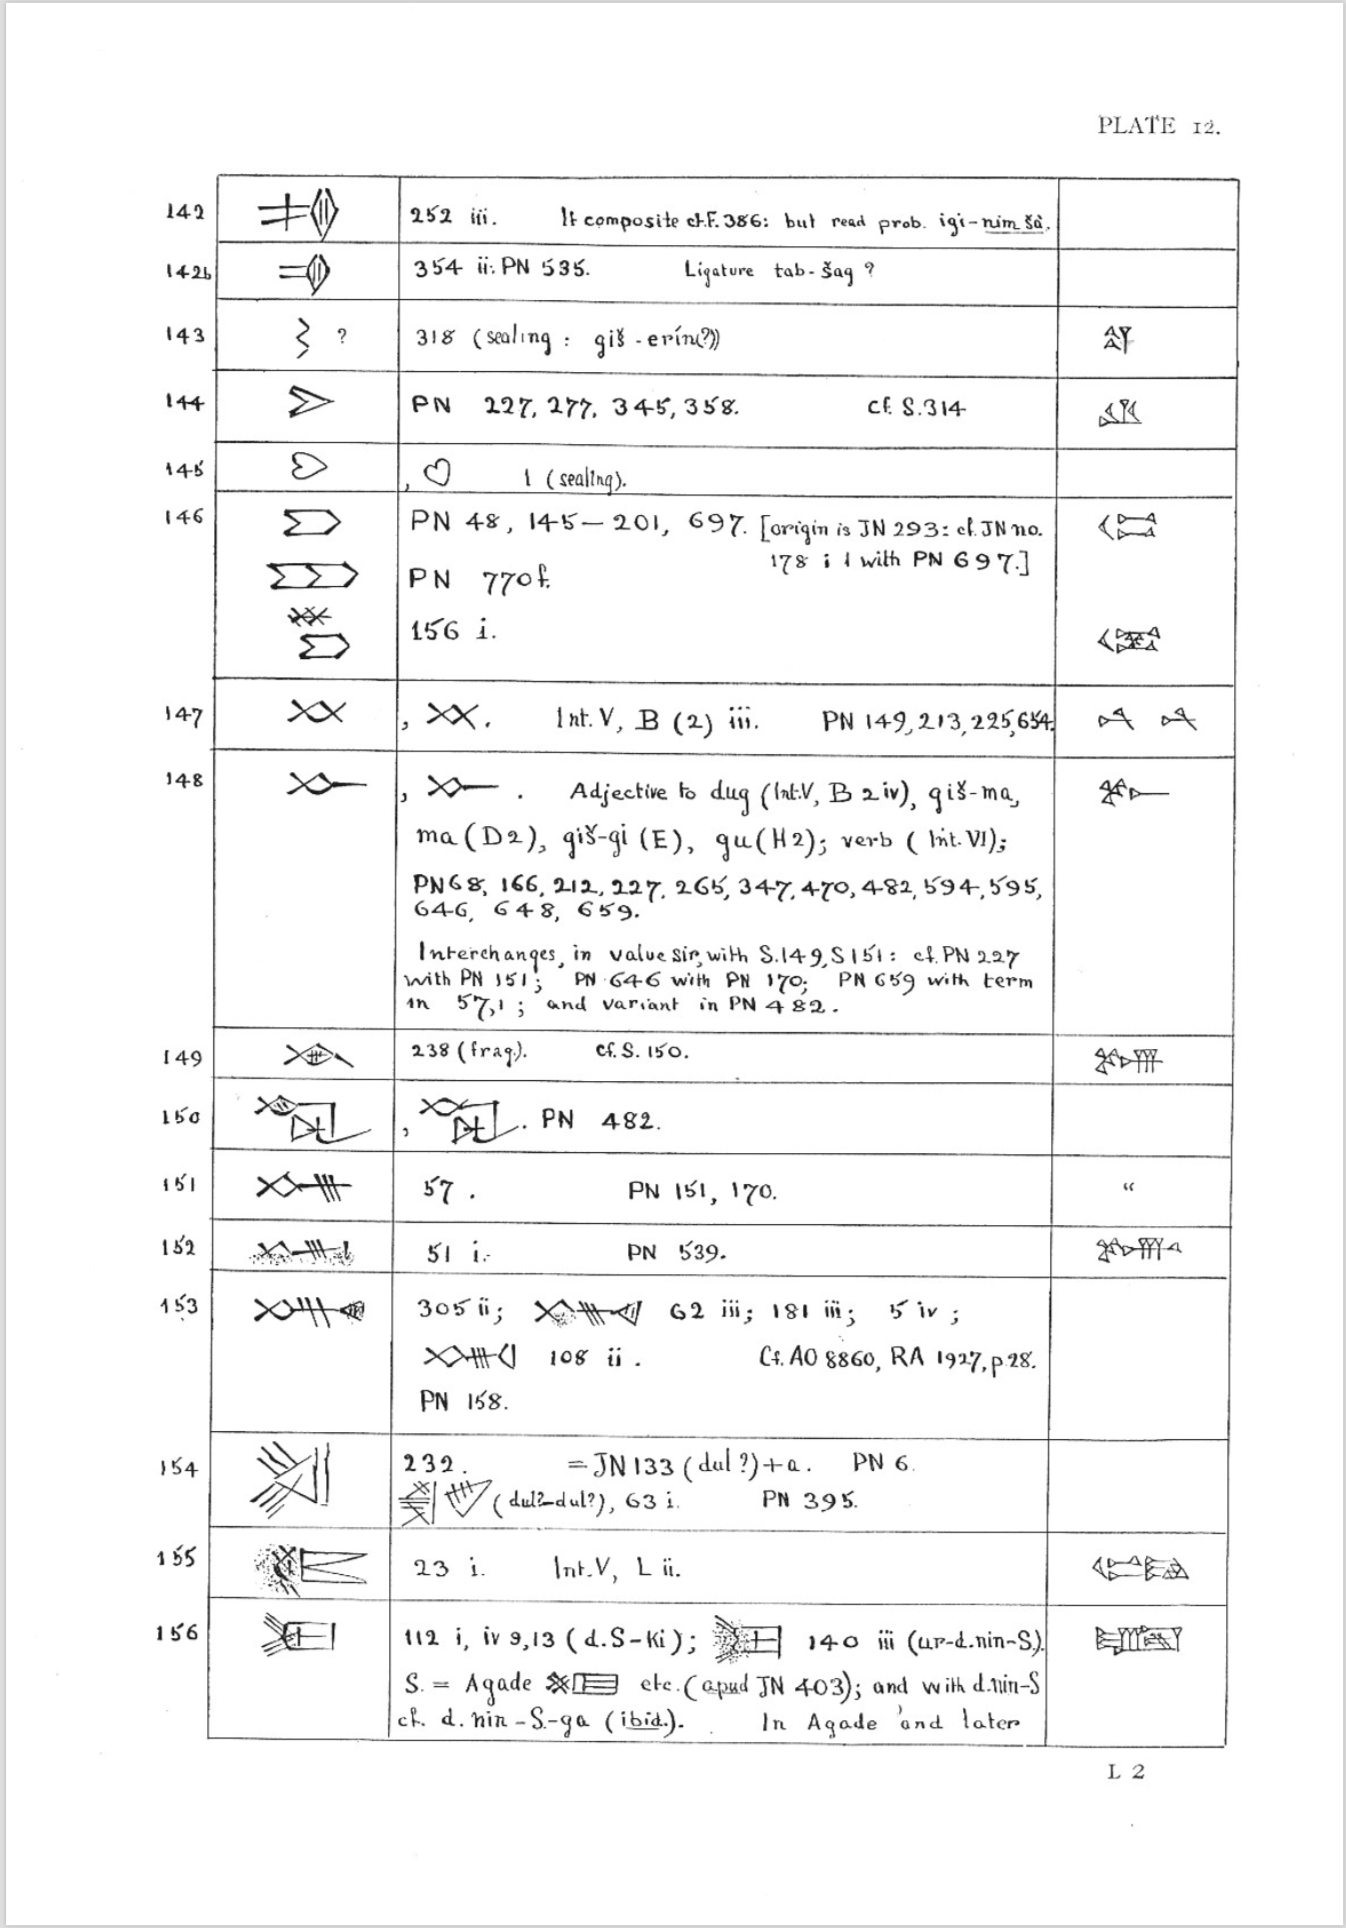 PLATE 12.
142 252 iii. If composite cf. F. 386: but read prob. igi-nim šà.
142b 354 ii: PN 535. Ligature tab-šag ?
143 ? 318 (sealing: giš-erín(?))
144 PN 227, 277, 345, 358. cf. S.314
145 , 1 (sealing).
146 PN 48, 145–201, 697. [origin is JN 293: cf. JN no.
178 i 1 with PN 697.]
PN 770f.
156 i.
147 , . Int. V, B (2) iii. PN 149, 213, 225, 654.
148 , . Adjective to dug (Int.V, B 2 iv), giš-ma,
ma (D2), giš-gi (E), gu (H2); verb (Int. VI);
PN 68, 166, 212, 227, 265, 347, 470, 482, 594, 595,
646, 648, 659.
Interchanges, in value sir, with S.149, S151: cf. PN 227
with PN 151; PN 646 with PN 170; PN 659 with term
in 57,1; and variant in PN 482.
149 238 (frag.). cf. S. 150.
150 , . PN 482.
151 57. PN 151, 170. “
152 51 i. PN 539.
153 305 ii; 62 iii; 181 iii; 5 iv;
108 ii. Cf. AO 8860, RA 1927, p. 28.
PN 158.
154 232. = JN 133 (dul ?) + a. PN 6.
(dul?-dul?), 63 i. PN 395.
155 23 i. Int. V, L ii.
156 112 i, iv 9, 13 (d.S-ki); 140 iii (ur-d.nin-S.).
S. = Agade etc. (apud JN 403); and with d.nin-S
cf. d. nin-S.-ga (ibid.). In Agade and later
L 2